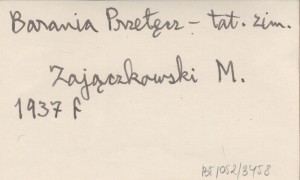 Barania Przełęcz – tat. zim.
Zajączkowski M.
1937 f
BŁ/052/3458